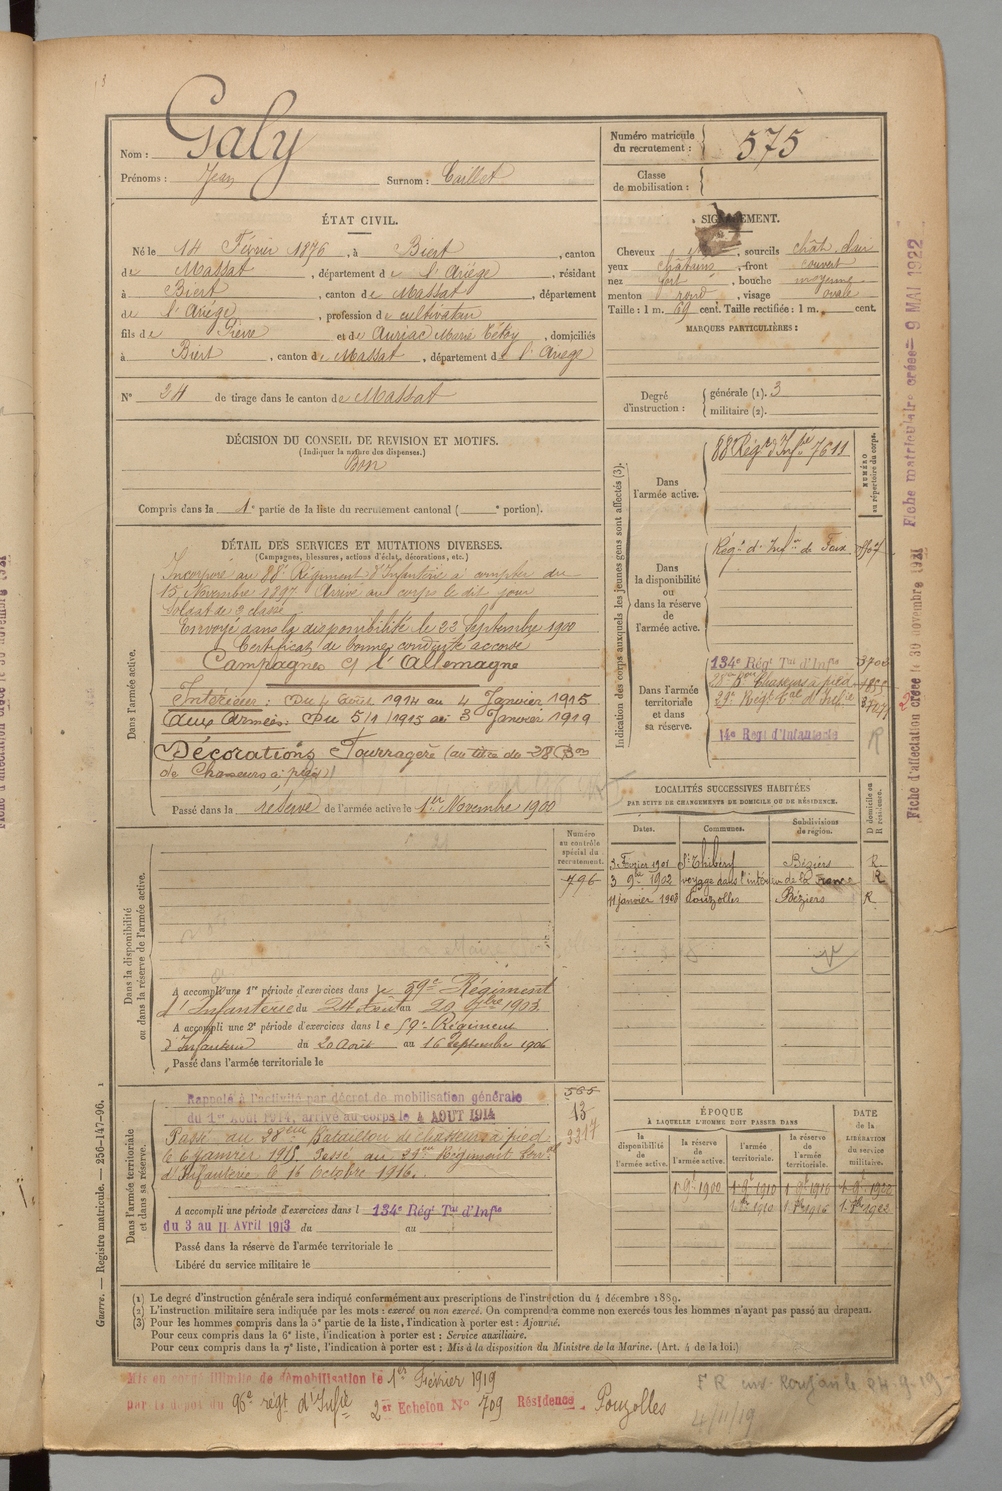 Galy
Nom :
Prénoms : Jean Surnom : Caillet
Numéro matricule
du recrutement : 575
Classe
de mobilisation :
ÉTAT CIVIL.
Né le 14 Février 1876, à Biert, canton
de Massat, département de l'Ariège, résidant
à Biert, canton de Massat, département
de l'Ariège, profession de cultivateur
fils de Pierre et de Auriac Marie, domiciliés
à Biert, canton de Massat, département de l'Ariège
N° 34 de tirage dans le canton de Massat
SIGNALEMENT.
Cheveux, sourcils chât. clair
yeux châtains, front couvert
nez fort, bouche moyenne
menton rond, visage ovale
Taille : 1 m. 69 cent. Taille rectifiée : 1 m. cent.
MARQUES PARTICULIÈRES :
Degré
d'instruction :
générale (1). 3
militaire (2).
DÉCISION DU CONSEIL DE REVISION ET MOTIFS.
(Indiquer la nature des dispenses.)
Bon
Compris dans la 1e partie de la liste du recrutement cantonal ( e portion).
DÉTAIL DES SERVICES ET MUTATIONS DIVERSES.
(Campagnes, blessures, actions d'éclat, décorations, etc.)
Dans l'armée active.
Incorporé au 88e Régiment d'Infanterie à compter du
15 Novembre 1897 Arrivé au corps le dit jour
Soldat de 2e classe
Envoyé dans la disponibilité le 22 Septembre 1900
Certificat de bonne conduite accordé
Campagnes c/ l'Allemagne
Intérieur : Du 4 Août 1914 au 4 Janvier 1915
Aux Armées : Du 5/1/1915 au 3 Janvier 1919
Décorations Fourragère (au titre du 28 Bon
de Chasseurs à pied)
Passé dans la réserve de l'armée active le 1er Novembre 1900
Indication des corps auxquels les jeunes gens sont affectés (3).
NUMÉRO
au répertoire du corps.
Dans
l'armée active.
88e Régt d'Infie 7611
Dans
la disponibilité
ou
dans la réserve
de
l'armée active.
Régt d'Infie de Foix
Dans l'armée
territoriale
et dans
sa réserve.
134e Régt Tal d'Infie
28e Bon Chasseurs à pied
14e Régt d'Infanterie
R
LOCALITÉS SUCCESSIVES HABITÉES
PAR SUITE DE CHANGEMENTS DE DOMICILE OU DE RÉSIDENCE.
Dates. Communes. Subdivisions
de région. D domicile ou
R résidence.
3 Février 1901 St Thibéry Béziers R.
3 9bre 1902 voyage dans l'intérieur de la France R
11 janvier 1903 Pouzolles Béziers R
Dans la disponibilité
ou dans la réserve de l'armée active.
Numéro
au contrôle
spécial du
recrutement.
796
A accompli une 1re période d'exercices dans le 59e Régiment
d'Infanterie du 24 Août au 20 7bre 1903.
A accompli une 2e période d'exercices dans le 59e Régiment
d'Infanterie du 20 Août au 16 Septembre 1906
Passé dans l'armée territoriale le
Dans l'armée territoriale
et dans sa réserve.
565
13
3317
Rappelé à l'activité par décret de mobilisation générale
du 1er Août 1914, arrivé au corps le 4 AOUT 1914
Passé au 28eme Bataillon de chasseurs à pied
le 6 janvier 1915. Passé au Régiment
d'Infanterie le 16 Octobre 1916.
A accompli une période d'exercices dans l 134e Régt Tal d'Infie
du 3 au 11 Avril 1913 du au
Passé dans la réserve de l'armée territoriale le
Libéré du service militaire le
ÉPOQUE
À LAQUELLE L'HOMME DOIT PASSER DANS
DATE
DE LA
LIBÉRATION
du service
militaire.
la
disponibilité
de
l'armée active.
la réserve
de
l'armée active.
l'armée
territoriale.
la réserve
de
l'armée
territoriale.
1 9e 1900 1 9e 1910 1 9e 1916 1 9e 1922
(1) Le degré d'instruction générale sera indiqué conformément aux prescriptions de l'instruction du 4 décembre 1889.
(2) L'instruction militaire sera indiquée par les mots : exercé ou non exercé. On comprendra comme non exercés tous les hommes n'ayant pas passé au drapeau.
(3) Pour les hommes compris dans la 5e partie de la liste, l'indication à porter est : Ajourné.
Pour ceux compris dans la 6e liste, l'indication à porter est : Service auxiliaire.
Pour ceux compris dans la 7e liste, l'indication à porter est : Mis à la disposition du Ministre de la Marine. (Art. 4 de la loi.)
Mis en congé illimité de démobilisation le 1er Février 1919
par le dépôt du 96e régt d'Infie 2er Echelon N° 709 Résidence Pouzolles
4/11/19
Guerre. — Registre matricule. — 256-147-96.
Fiche matriculaire créée - 9 MAI 1922
Fiche d'affectation créée le 30 novembre 1921